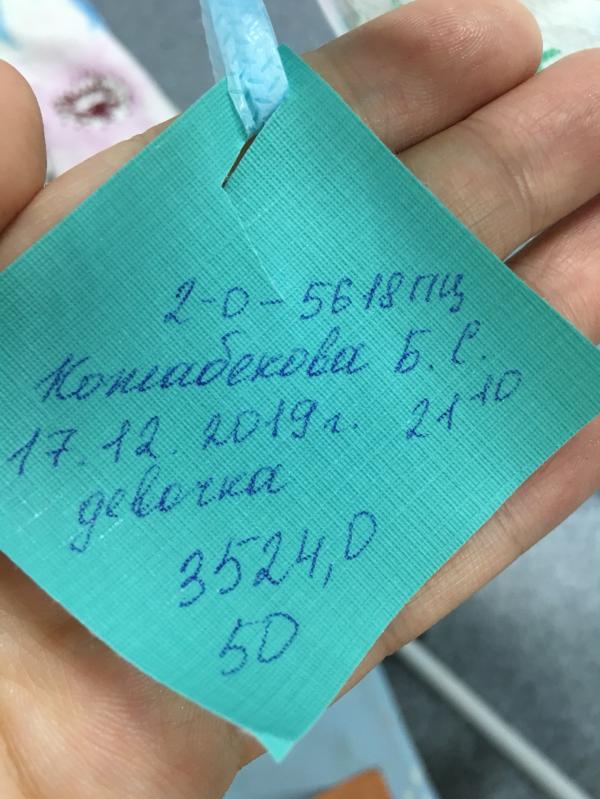 2-0-5618ПЦ
Кожабекова Б. С.
17.12.2019г. 21 10
девочка
3524,0
50